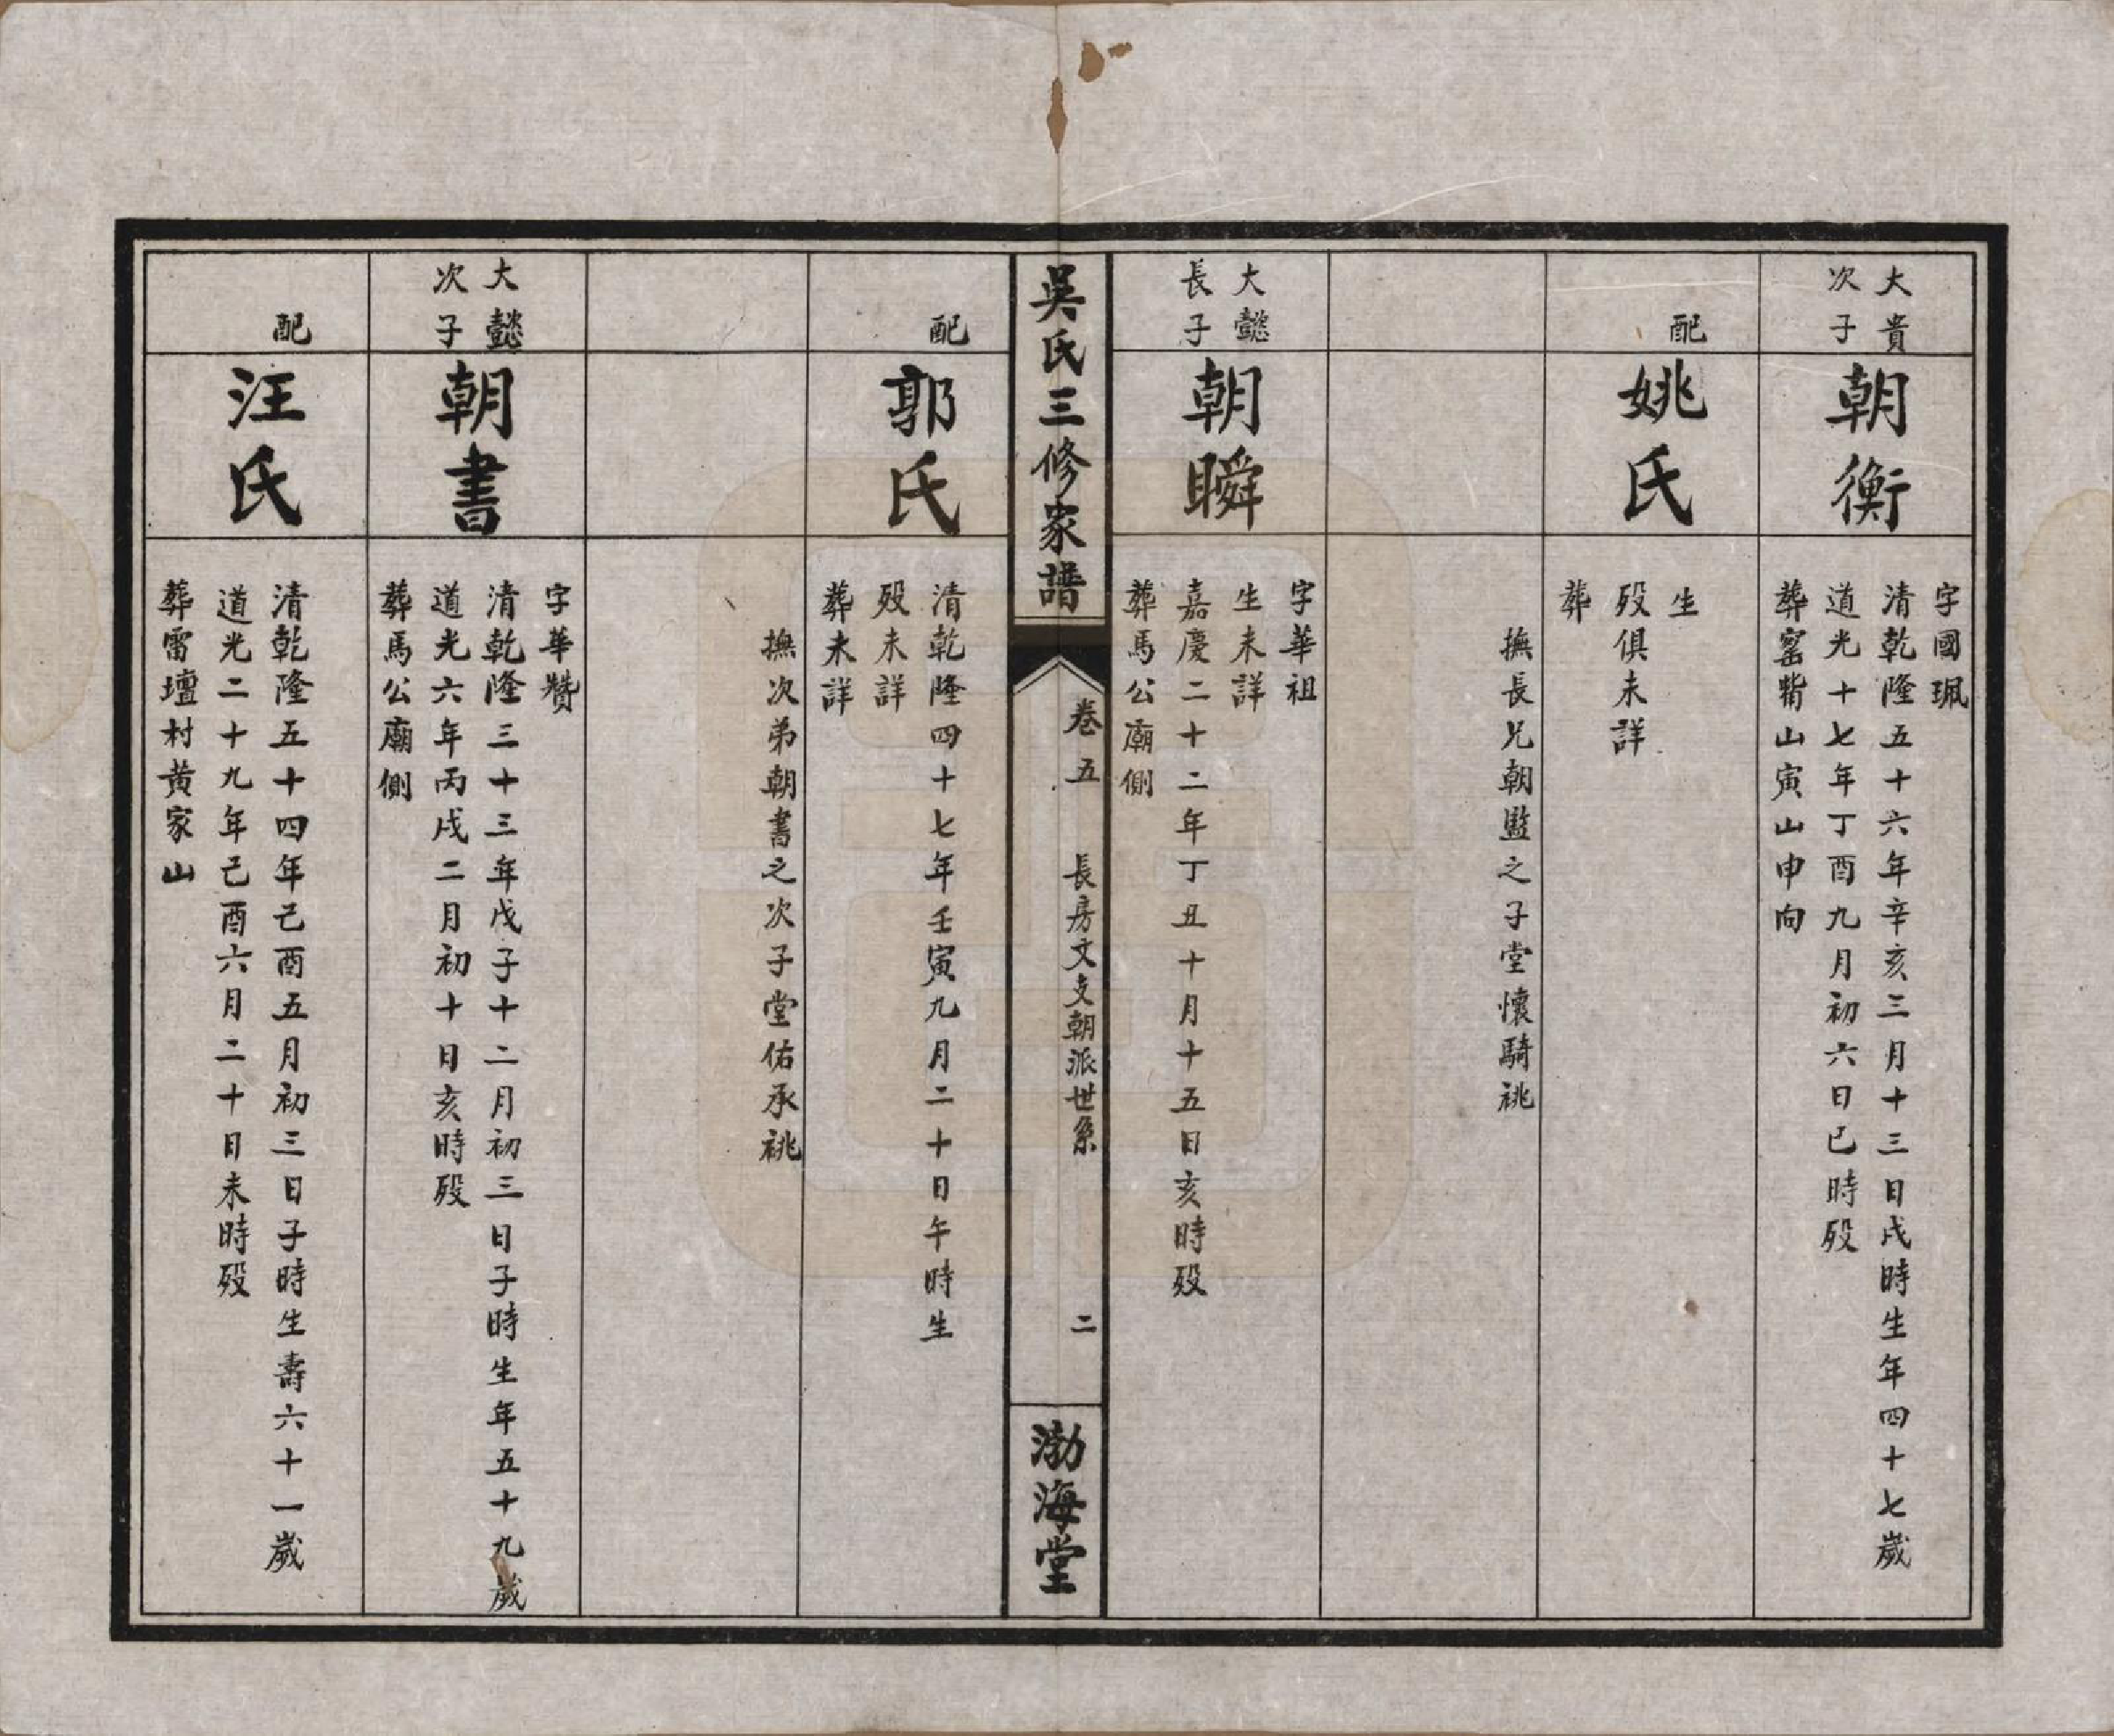 大貴
次子
朝衡
字國珮
清乾隆五十六年辛亥三月十三日戌時生年四十七歲
道光十七年丁酉九月初六日巳時殁
葬窰背山寅山申向
配
姚氏
生
殁俱未詳
葬
撫長兄朝監之子堂懷騎祧
大懿
長子
朝瞬
字華祖
生未詳
嘉慶二十二年丁丑十月十五日亥時殁
葬馬公廟側
吳氏三修家譜
卷五
長房文支朝派世系
二
渤海堂
配
郭氏
清乾隆四十七年壬寅九月二十日午時生
殁未詳
葬未詳
撫次弟朝書之次子堂佑承祧
大懿
次子
朝書
字華贊
清乾隆三十三年戊子十二月初三日子時生年五十九歲
道光六年丙戌二月初十日亥時殁
葬馬公廟側
配
汪氏
清乾隆五十四年己酉五月初三日子時生壽六十一歲
道光二十九年己酉六月二十日未時殁
葬雷壇村黄家山